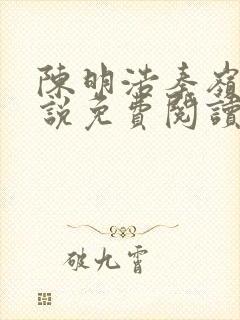 陳明浩秦嶺
說免費閱讀
破九霄